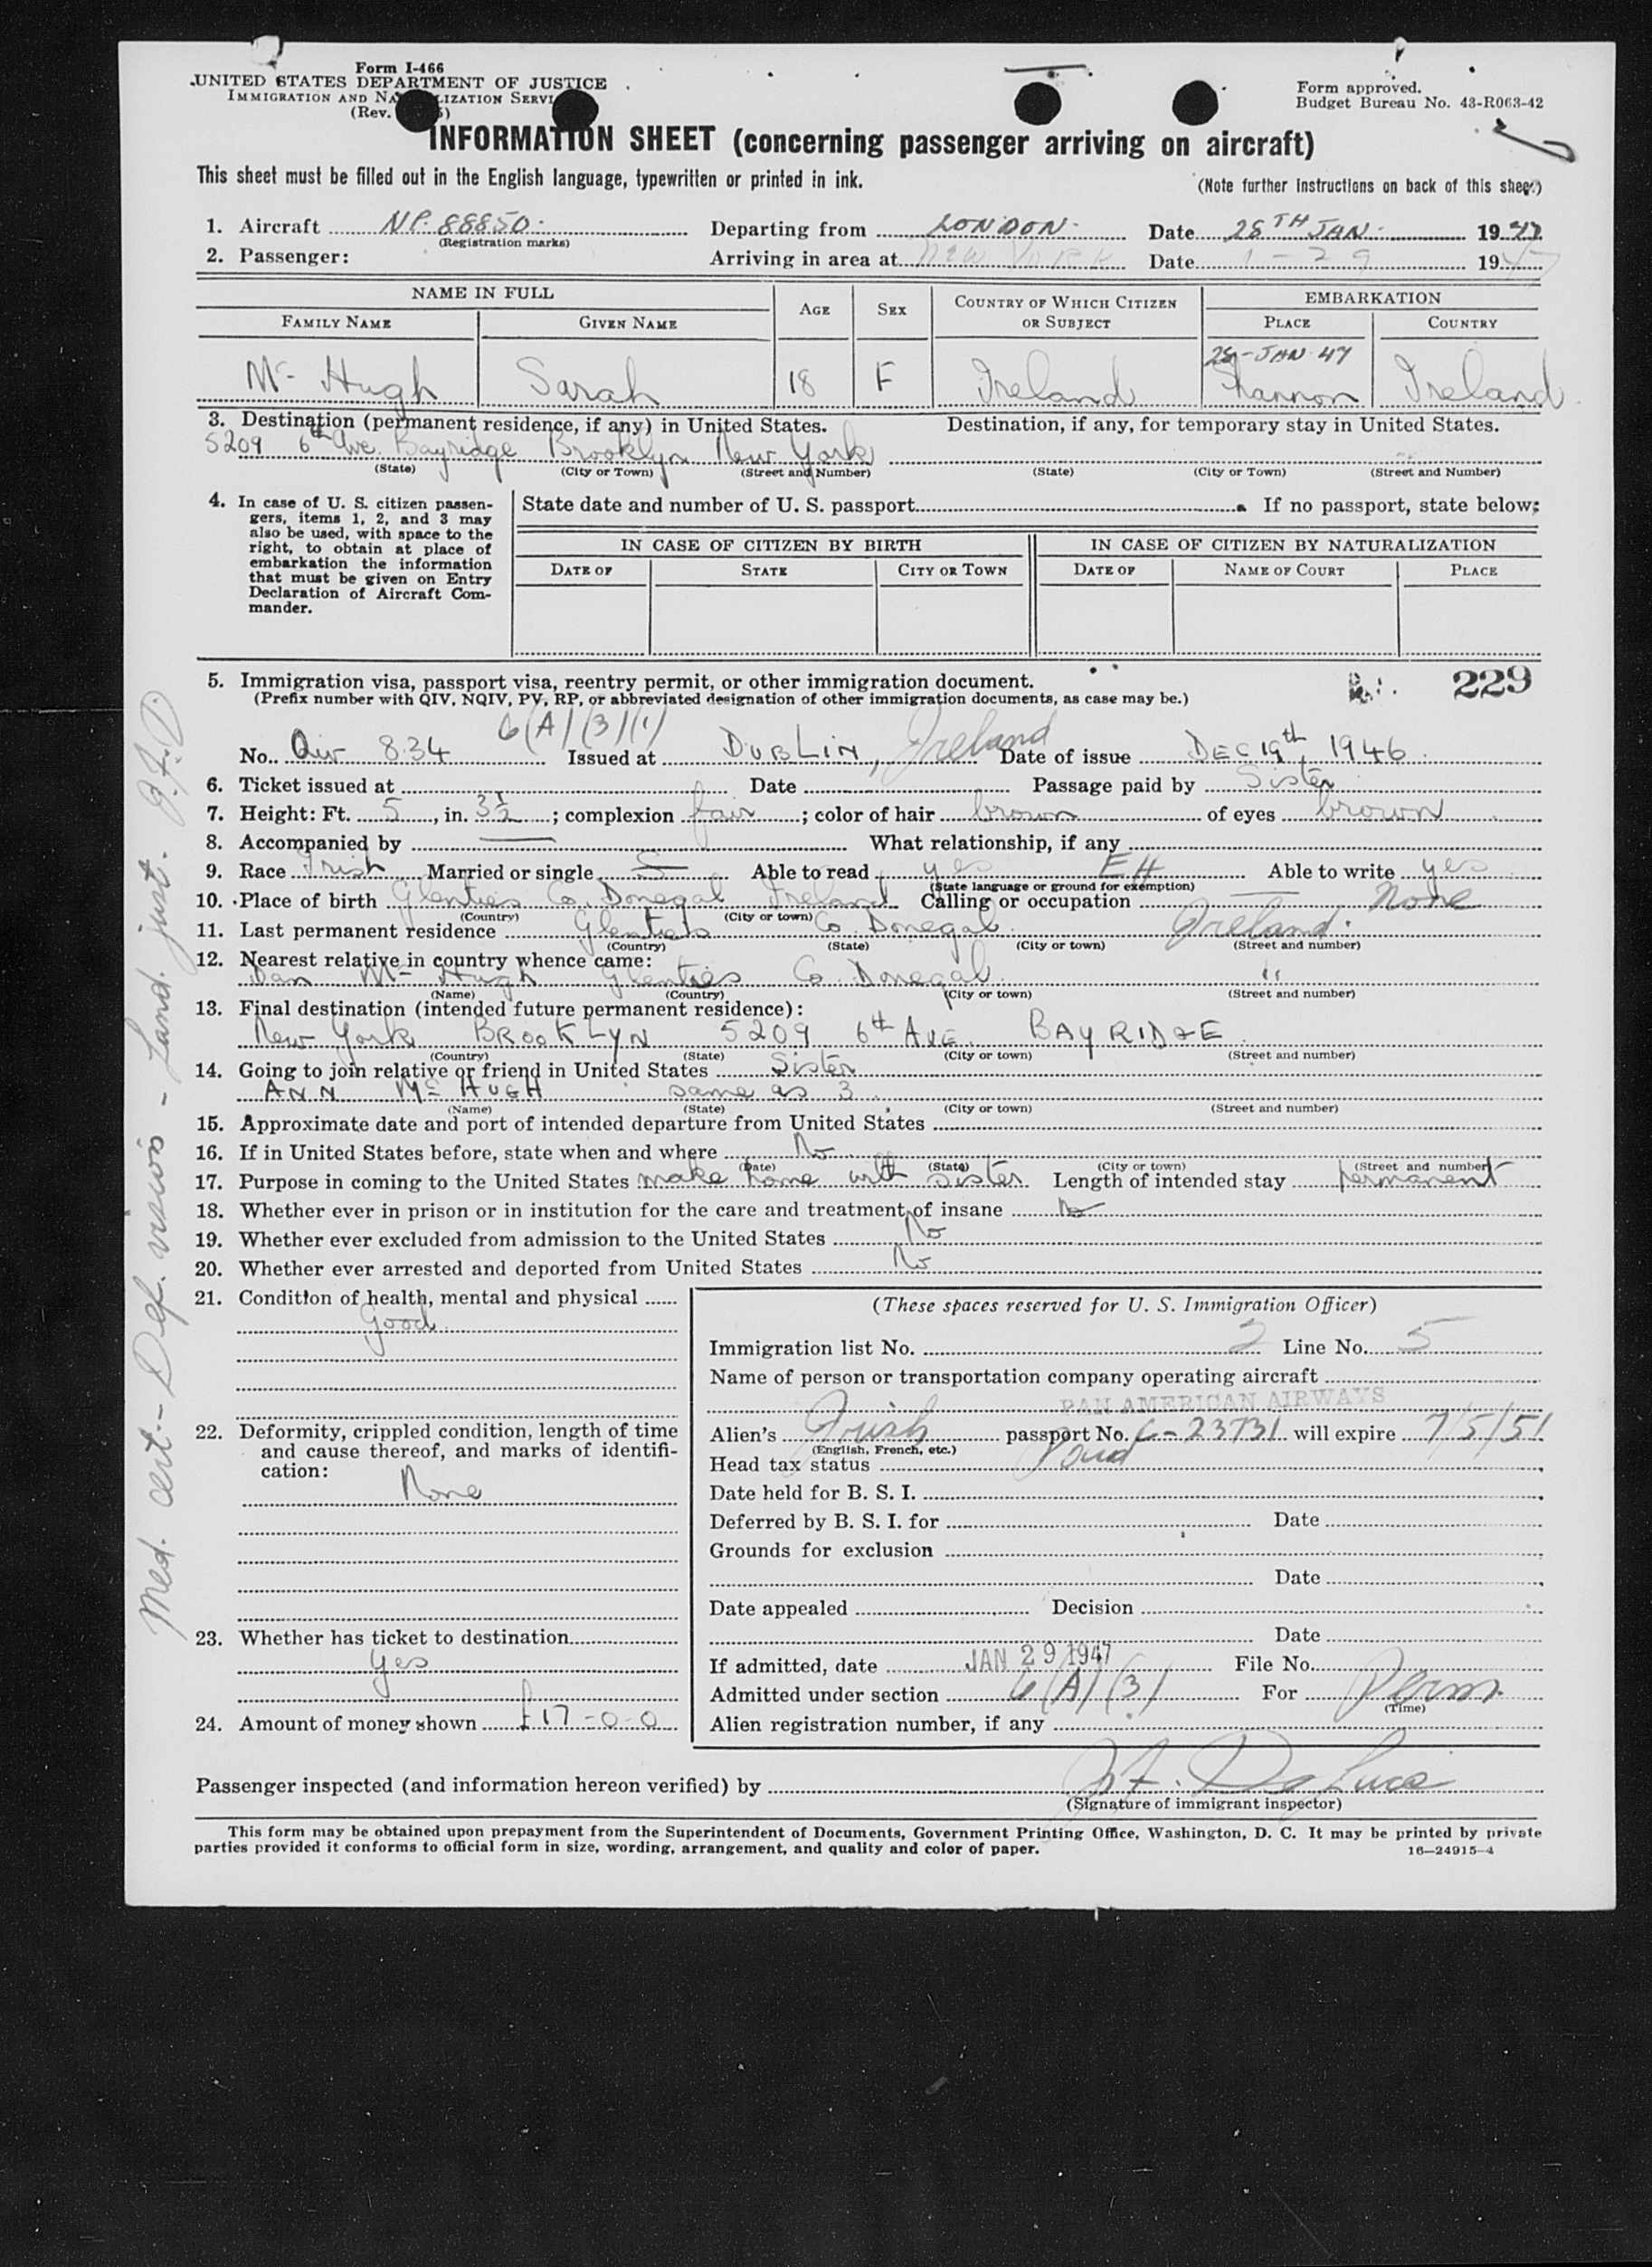 Form I-466
UNITED STATES DEPARTMENT OF JUSTICE
IMMIGRATION AND NA LIZATION SERVI
(Rev. )
Form approved.
Budget Bureau No. 43-R063-42
INFORMATION SHEET (concerning passenger arriving on aircraft)
This sheet must be filled out in the English language, typewritten or printed in ink.
(Note further instructions on back of this sheet)
1. Aircraft NC. 88850. Departing from LONDON. Date 28TH JAN. 1947
(Registration marks)
2. Passenger: Arriving in area at New York Date 1-29 1947
NAME IN FULL AGE SEX COUNTRY OF WHICH CITIZEN OR SUBJECT EMBARKATION
FAMILY NAME GIVEN NAME PLACE COUNTRY
28-JAN 47
Mc Hugh Sarah 18 F Ireland Shannon Ireland
3. Destination (permanent residence, if any) in United States. Destination, if any, for temporary stay in United States.
5209 6th Ave. Bayridge Brooklyn New York
(State) (City or Town) (Street and Number) (State) (City or Town) (Street and Number)
4. In case of U. S. citizen passengers, items 1, 2, and 3 may also be used, with space to the right, to obtain at place of embarkation the information that must be given on Entry Declaration of Aircraft Commander.
State date and number of U. S. passport. If no passport, state below:
IN CASE OF CITIZEN BY BIRTH IN CASE OF CITIZEN BY NATURALIZATION
DATE OF STATE CITY OR TOWN DATE OF NAME OF COURT PLACE
229
5. Immigration visa, passport visa, reentry permit, or other immigration document.
(Prefix number with QIV, NQIV, PV, RP, or abbreviated designation of other immigration documents, as case may be.)
6(A)(3)(1)
No. Qiv 834 Issued at DUBLIN, Ireland Date of issue DEC 19th, 1946
6. Ticket issued at Date Passage paid by Sister
7. Height: Ft. 5, in. 3½; complexion fair; color of hair brown of eyes brown
8. Accompanied by — What relationship, if any
9. Race Irish Married or single S Able to read yes EH Able to write yes
(State language or ground for exemption)
10. Place of birth Glenties Co. Donegal Ireland Calling or occupation None
(Country) (City or town)
11. Last permanent residence Glenties Co Donegal. Ireland.
(Country) (State) (City or town) (Street and number)
12. Nearest relative in country whence came:
Dan Mc Hugh Glenties Co Donegal. "
(Name) (Country) (City or town) (Street and number)
13. Final destination (intended future permanent residence):
New York BROOKLYN 5209 6th AVE. BAYRIDGE
(Country) (State) (City or town) (Street and number)
14. Going to join relative or friend in United States Sister
ANN Mc HUGH same as 3.
(Name) (State) (City or town) (Street and number)
15. Approximate date and port of intended departure from United States
16. If in United States before, state when and where No
(Date) (State) (City or town) (Street and number)
17. Purpose in coming to the United States make home with sister Length of intended stay permanent
18. Whether ever in prison or in institution for the care and treatment of insane No
19. Whether ever excluded from admission to the United States No
20. Whether ever arrested and deported from United States No
21. Condition of health, mental and physical
Good.
22. Deformity, crippled condition, length of time and cause thereof, and marks of identification:
None
23. Whether has ticket to destination
yes
24. Amount of money shown £17-0-0
(These spaces reserved for U. S. Immigration Officer)
Immigration list No. 2 Line No. 5
Name of person or transportation company operating aircraft
PAN AMERICAN AIRWAYS
Alien's Irish passport No. C-23731 will expire 7/5/51
(English, French, etc.)
Head tax status Paid
Date held for B. S. I.
Deferred by B. S. I. for Date
Grounds for exclusion
Date
Date appealed Decision
Date
If admitted, date JAN 29 1947 File No.
Admitted under section 6(A)(3) For Perm.
(Time)
Alien registration number, if any
Passenger inspected (and information hereon verified) by De Luca
(Signature of immigrant inspector)
This form may be obtained upon prepayment from the Superintendent of Documents, Government Printing Office, Washington, D. C. It may be printed by private
parties provided it conforms to official form in size, wording, arrangement, and quality and color of paper.
16—24915-4
Med. cert. - Def. vision - Land. just. J.F.D